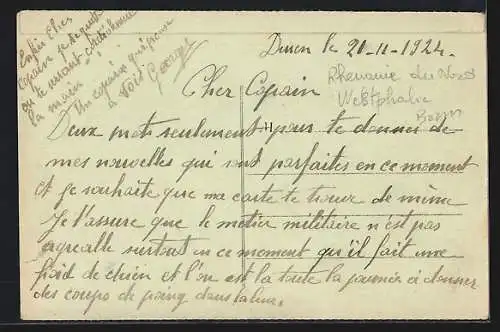 Duren le 21-11-1924.
Cher Copain
Rhenanie du Nord
Westphalie
Deux mots seulement pour te donner de
mes nouvelles qui sont parfaites en ce moment
et je souhaite que ma carte te trouve de même
Je t'assure que le metier militaire n'est pas
agreable surtout en ce moment qu'il fait une
froid de chien et l'on est la toute la journée à donner
des coups de poing dans la lune.
Enfin Cher
Copain je te quitte
en te serrant cordialement
la main
Un copain qui pense
à toi. Georges